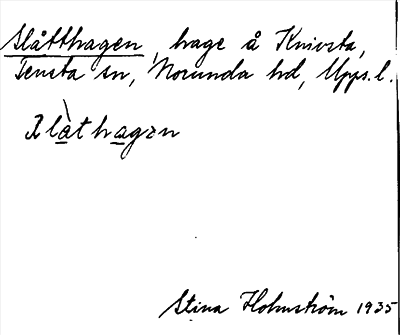 Slåtthagen, hage å Knivsta,
Tensta sn, Norunda hd, Upps. l.
slàthagen
Stina Holmström 1935